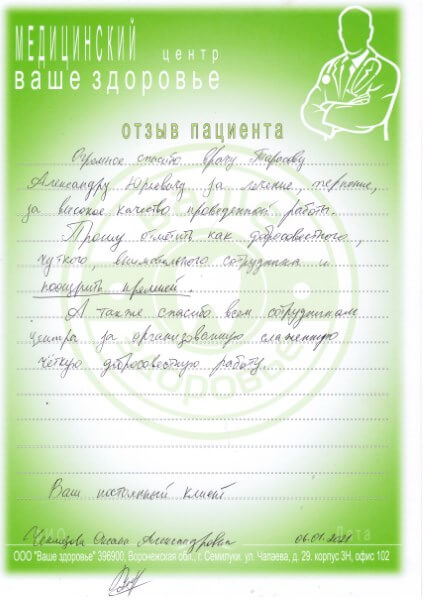 МЕДИЦИНСКИЙ центр
ваше здоровье
отзыв пациента
Огромное спасибо врачу Тарасову
Александру Юрьевичу за лечение, терпение,
за высокое качество проведенной работы.
Прошу отметить как добросовестного,
чуткого, внимательного сотрудника и
поощрить премией.
А также спасибо всем сотрудникам
центра за организованную слаженную
чёткую добросовестную работу.
Ваш постоянный клиент
Оксана Александровна 06.01.2021
Дата
ООО "Ваше здоровье" 396900, Воронежская обл., г. Семилуки. ул. Чапаева, д. 29. корпус 3Н, офис 102